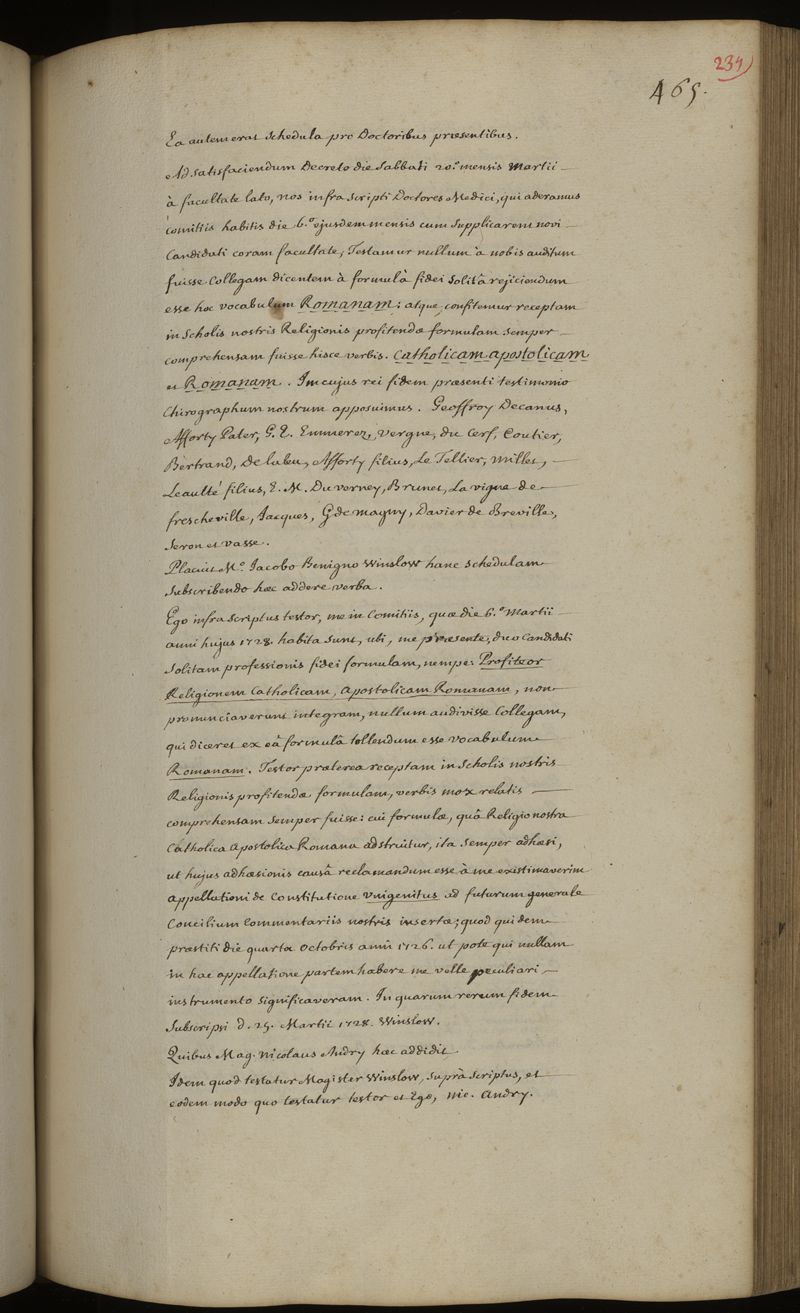 234)
465.
Ea autem erat Schedula pro Doctoribus præsentibus.
Ad satisfaciendum Decreto die Sabbati 20.ª mensis Martii
à facultate lato, nos infra scripti Doctores Medici, qui aderamus
comitiis habitis die 6.ª ejusdem mensis cum Supplicarent novi
Candidati coram facultate, Testamur nullum à nobis auditum
fuisse Collegam dicentem à formulâ fidei Solitâ rejiciendum
esse hoc vocabulum Romanam: atque confitemur receptam
in Scholis nostris Religionis profitendæ formulam Semper
comprehensam fuisse hisce verbis. Catholicam apostolicam
et Romanam. In cujus rei fidem præsenti testimonio
Chirographum nostrum apposuimus. Geoffroy Decanus,
Afforty Pater, G. E. Emmerez, Vergne, du Cerf, Coutier,
Bertrand, De laleu, Afforty filius, Le Tellier, Millet,
Leaulté filius, E. M. Du verney, Brunet, La vigne de
frescheville, Jacques, G. de Magny, Davier de Breville,
Seron et Vasse.
Placuit M.º Jacobo Benigno Winslow hanc Schedulam
Subscribendo hæc addere verba.
Ego infra Scriptus testor, me in Comitiis, quæ die 6.ª Martii
anni hujus 1728. habita Sunt, ubi, me præsente, duo Candidati
Solitam professionis fidei formulam, nempe: Profiteor
Religionem Catholicam, Apostolicam Romanam, non
pronunciaverunt integram, nullum audivisse Collegam,
qui diceret ex eâ formulâ tollendum esse vocabulum
Romanam. Testor præterea receptam in Scholis nostris
Religionis profitendæ formulam, verbis mox relatis
comprehensam Semper fuisse: cui formulæ, quâ Religio nostra
Catholica Apostolica Romana adstruitur, ita Semper adhæsi,
ut hujus adhæsionis causâ reclamandum esse à me existimaverim
appellationi de Constitutione Unigenitus ad futurum generale
Concilium Commentariis nostris insertæ; quod quidem
præstiti die quarta Octobris anni 1726. ut pote qui nullam
in hac appellatione partem habere me velle peculiari
instrumento Significaveram. In quorum rerum fidem
Subscripsi d. 25. Martii 1728. Winslow.
Quibus Mag. Nicolaus Andry hæc addidit.
Idem quod testatur Magister Winslow, Suprà Scriptus, et
eodem modo quo testatur testor et Ego, Nic. Andry.